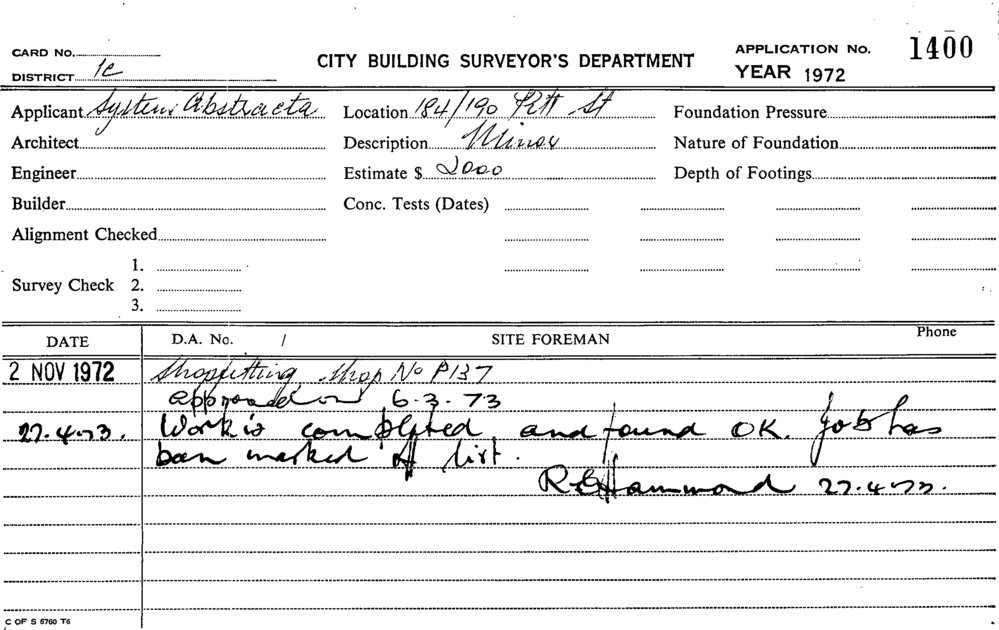 CARD No.
DISTRICT 1C
CITY BUILDING SURVEYOR'S DEPARTMENT
APPLICATION No. 1400
YEAR 1972
Applicant System Abstracta Location 184/190 Pitt St Foundation Pressure
Architect Description Minor Nature of Foundation
Engineer Estimate $ 2000 Depth of Footings
Builder Conc. Tests (Dates)
Alignment Checked
1.
Survey Check 2.
3.
DATE D.A. No. / SITE FOREMAN Phone
2 NOV 1972 Shopfitting, Shop No P137
approved on 6.3.73
27.4.73. Work is completed and found OK. Job has
been marked off list.
R G Hammond 27.4.73.
C OF S 6760 T6